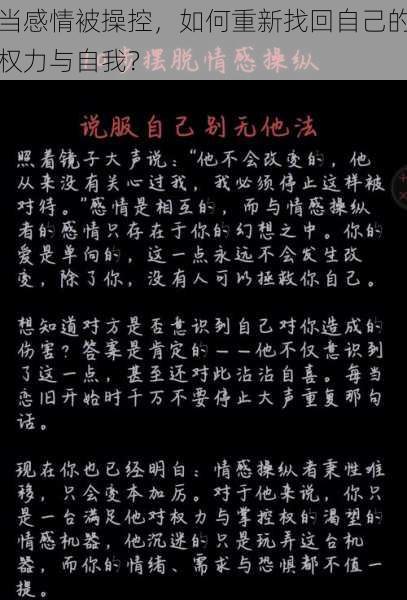 当感情被操控，如何重新找回自己的
权力与自我？
摆脱情感操纵
说服自己别无他法
照着镜子大声说：“他不会改变的，他
从来没有关心过我，我必须停止这样被
对待。”感情是相互的，而与情感操纵
者的感情只存在于你的幻想之中。你的
爱是单向的，这一点永远不会发生改
变，除了你，没有人可以拯救你自己。
想知道对方是否意识到自己对你造成的
伤害？答案是肯定的——他不仅意识到
了这一点，甚至还对此沾沾自喜。每当
恋旧开始时千万不要停止大声重复那句
话。
现在你也已经明白：情感操纵者秉性难
移，只会变本加厉。对于他来说，你只
是一台满足他对权力与掌控权的渴望的
情感机器，他沉迷的只是玩弄这台机
器，而你的情绪、需求与恐惧都不值一
提。